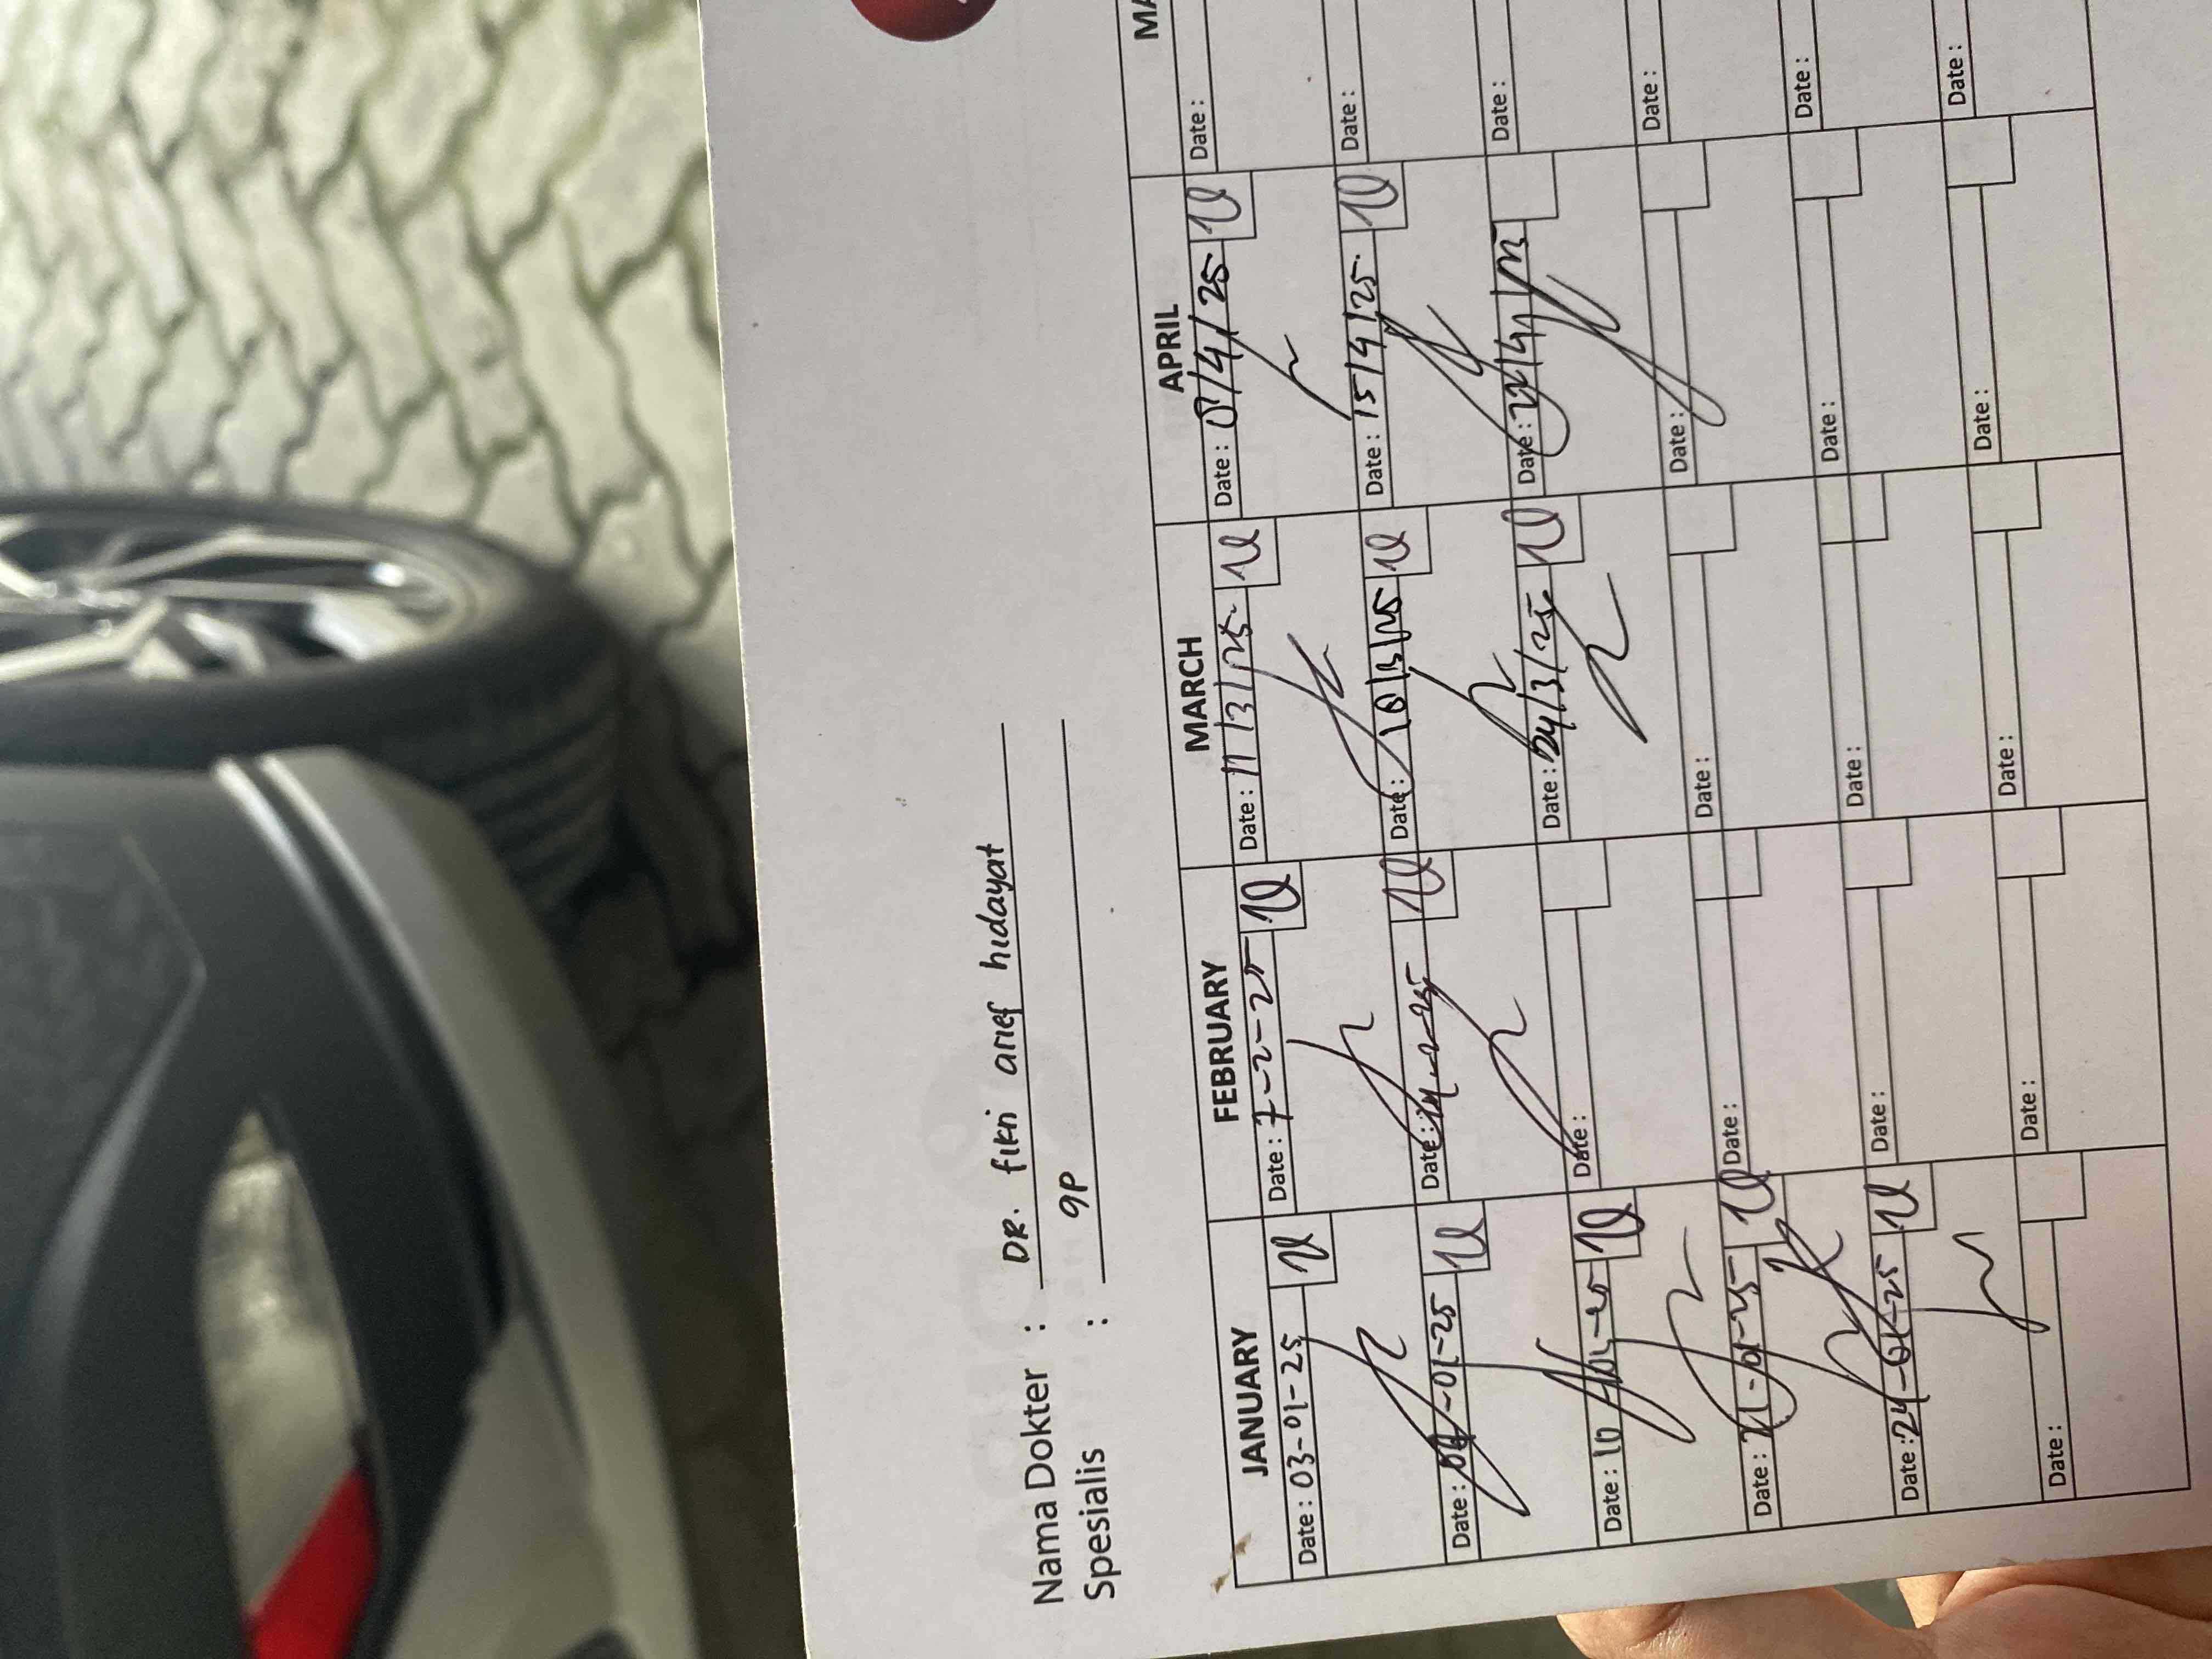 Nama Dokter : DR. fikri arief hidayat
Spesialis : gp
JANUARY FEBRUARY MARCH APRIL MA
Date : 03-01-25 Date : 7-2-25 Date : 11/3/25 Date : 8/4/25 Date :
Date : -01-25 Date : 14-2-25 Date : 18/3/25 Date : 15/4/25 Date :
Date : 10 Date : Date : 24/3/25 Date : 22/4/ Date :
Date : 21-01-25 Date : Date : Date : Date :
Date : 24-01-25 Date : Date : Date : Date :
Date : Date : Date : Date : Date :